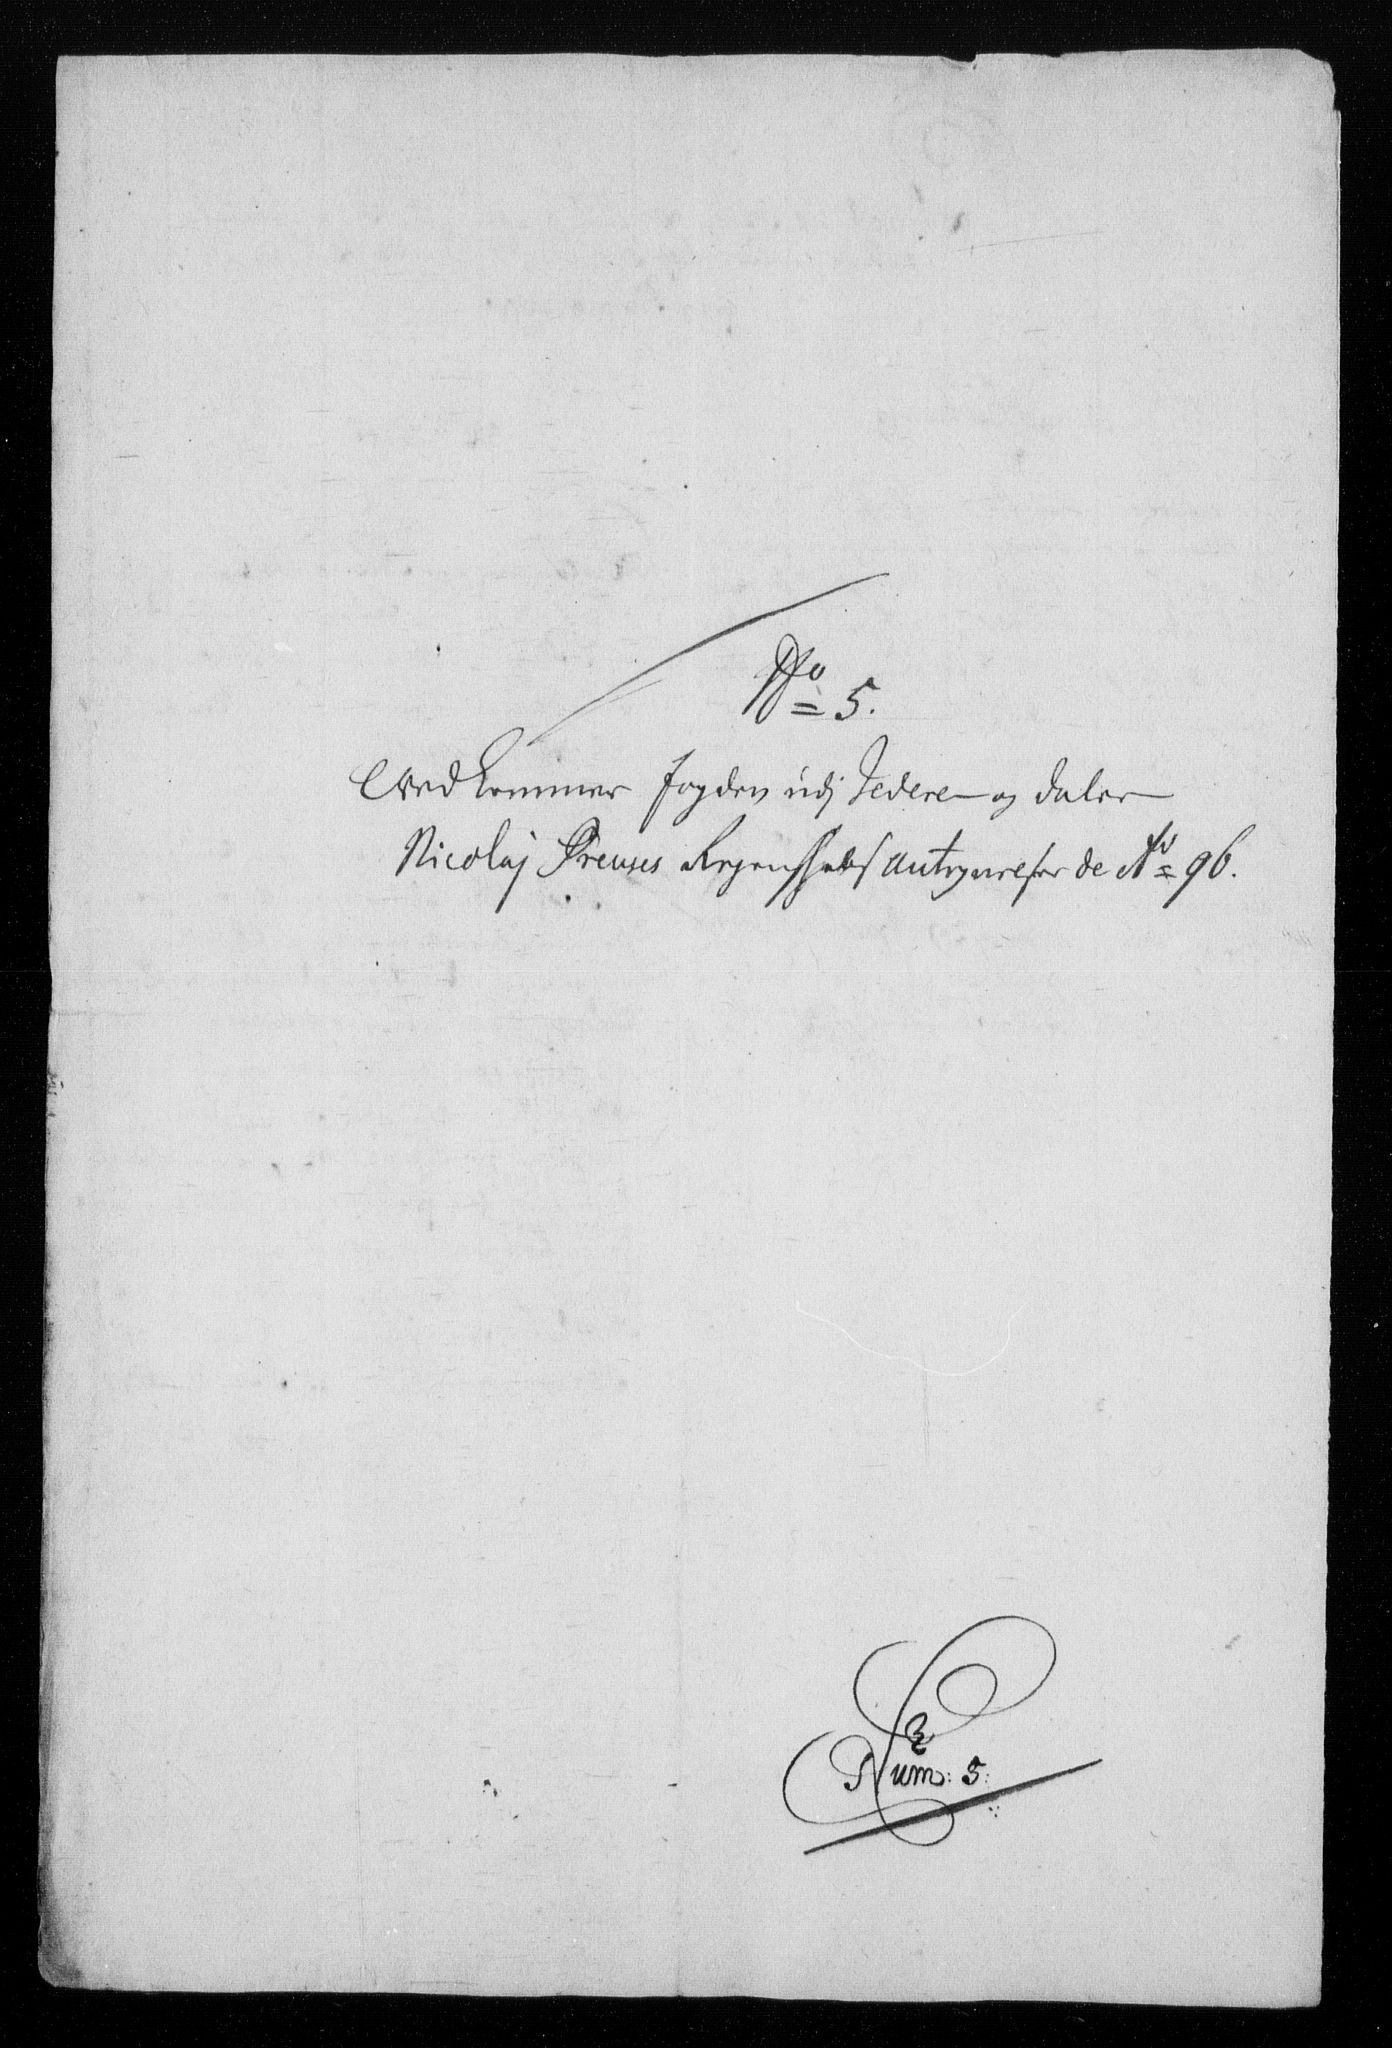 No 5.
Ved kommer fogden udj Jederen og daler
Nicolaj Preuses Regenschabs antegnelser de Ao 96.
Num: 5: